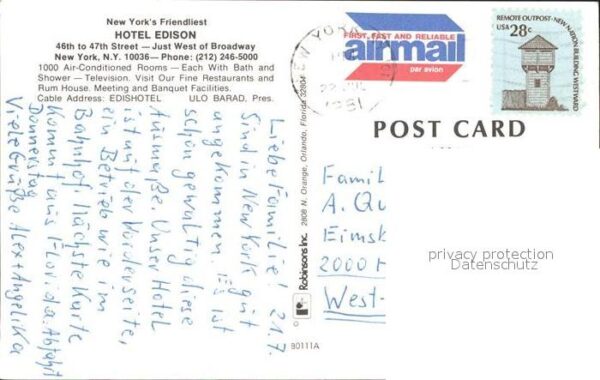 New York's Friendliest
HOTEL EDISON
46th to 47th Street — Just West of Broadway
New York, N.Y. 10036 – Phone: (212) 246-5000
1000 Air-Conditioned Rooms — Each With Bath and
Shower — Television. Visit Our Fine Restaurants and
Rum House. Meeting and Banquet Facilities.
Cable Address: EDISHOTEL ULO BARAD, Pres.
21.7.
Liebe Familie!
Sind in New York gut
angekommen. Es ist
schon gewaltig diese
Ausmaße. Unser Hotel
ist auf der Vorderseite,
ein Betrieb wie im
Bahnhof. Nächste Karte
kommt aus Florida. Abfahrt
Donnerstag
Viele Grüße Alex + Angelika
Robinsons Inc. 2808 N. Orange, Orlando, Florida 32804
80111A
NEW YORK
1981
FIRST, FAST AND RELIABLE
airmail
par avion
REMOTE OUTPOST-NEW NATION BUILDING WESTWARD
USA 28c
POST CARD
Famil
A. Qu
Eimsk
2000 H
West-
privacy protection
Datenschutz